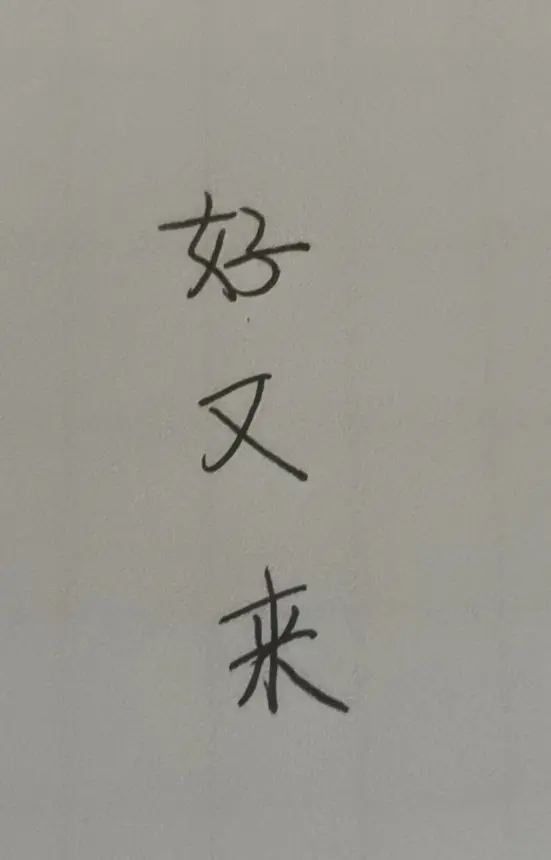 好
又
来